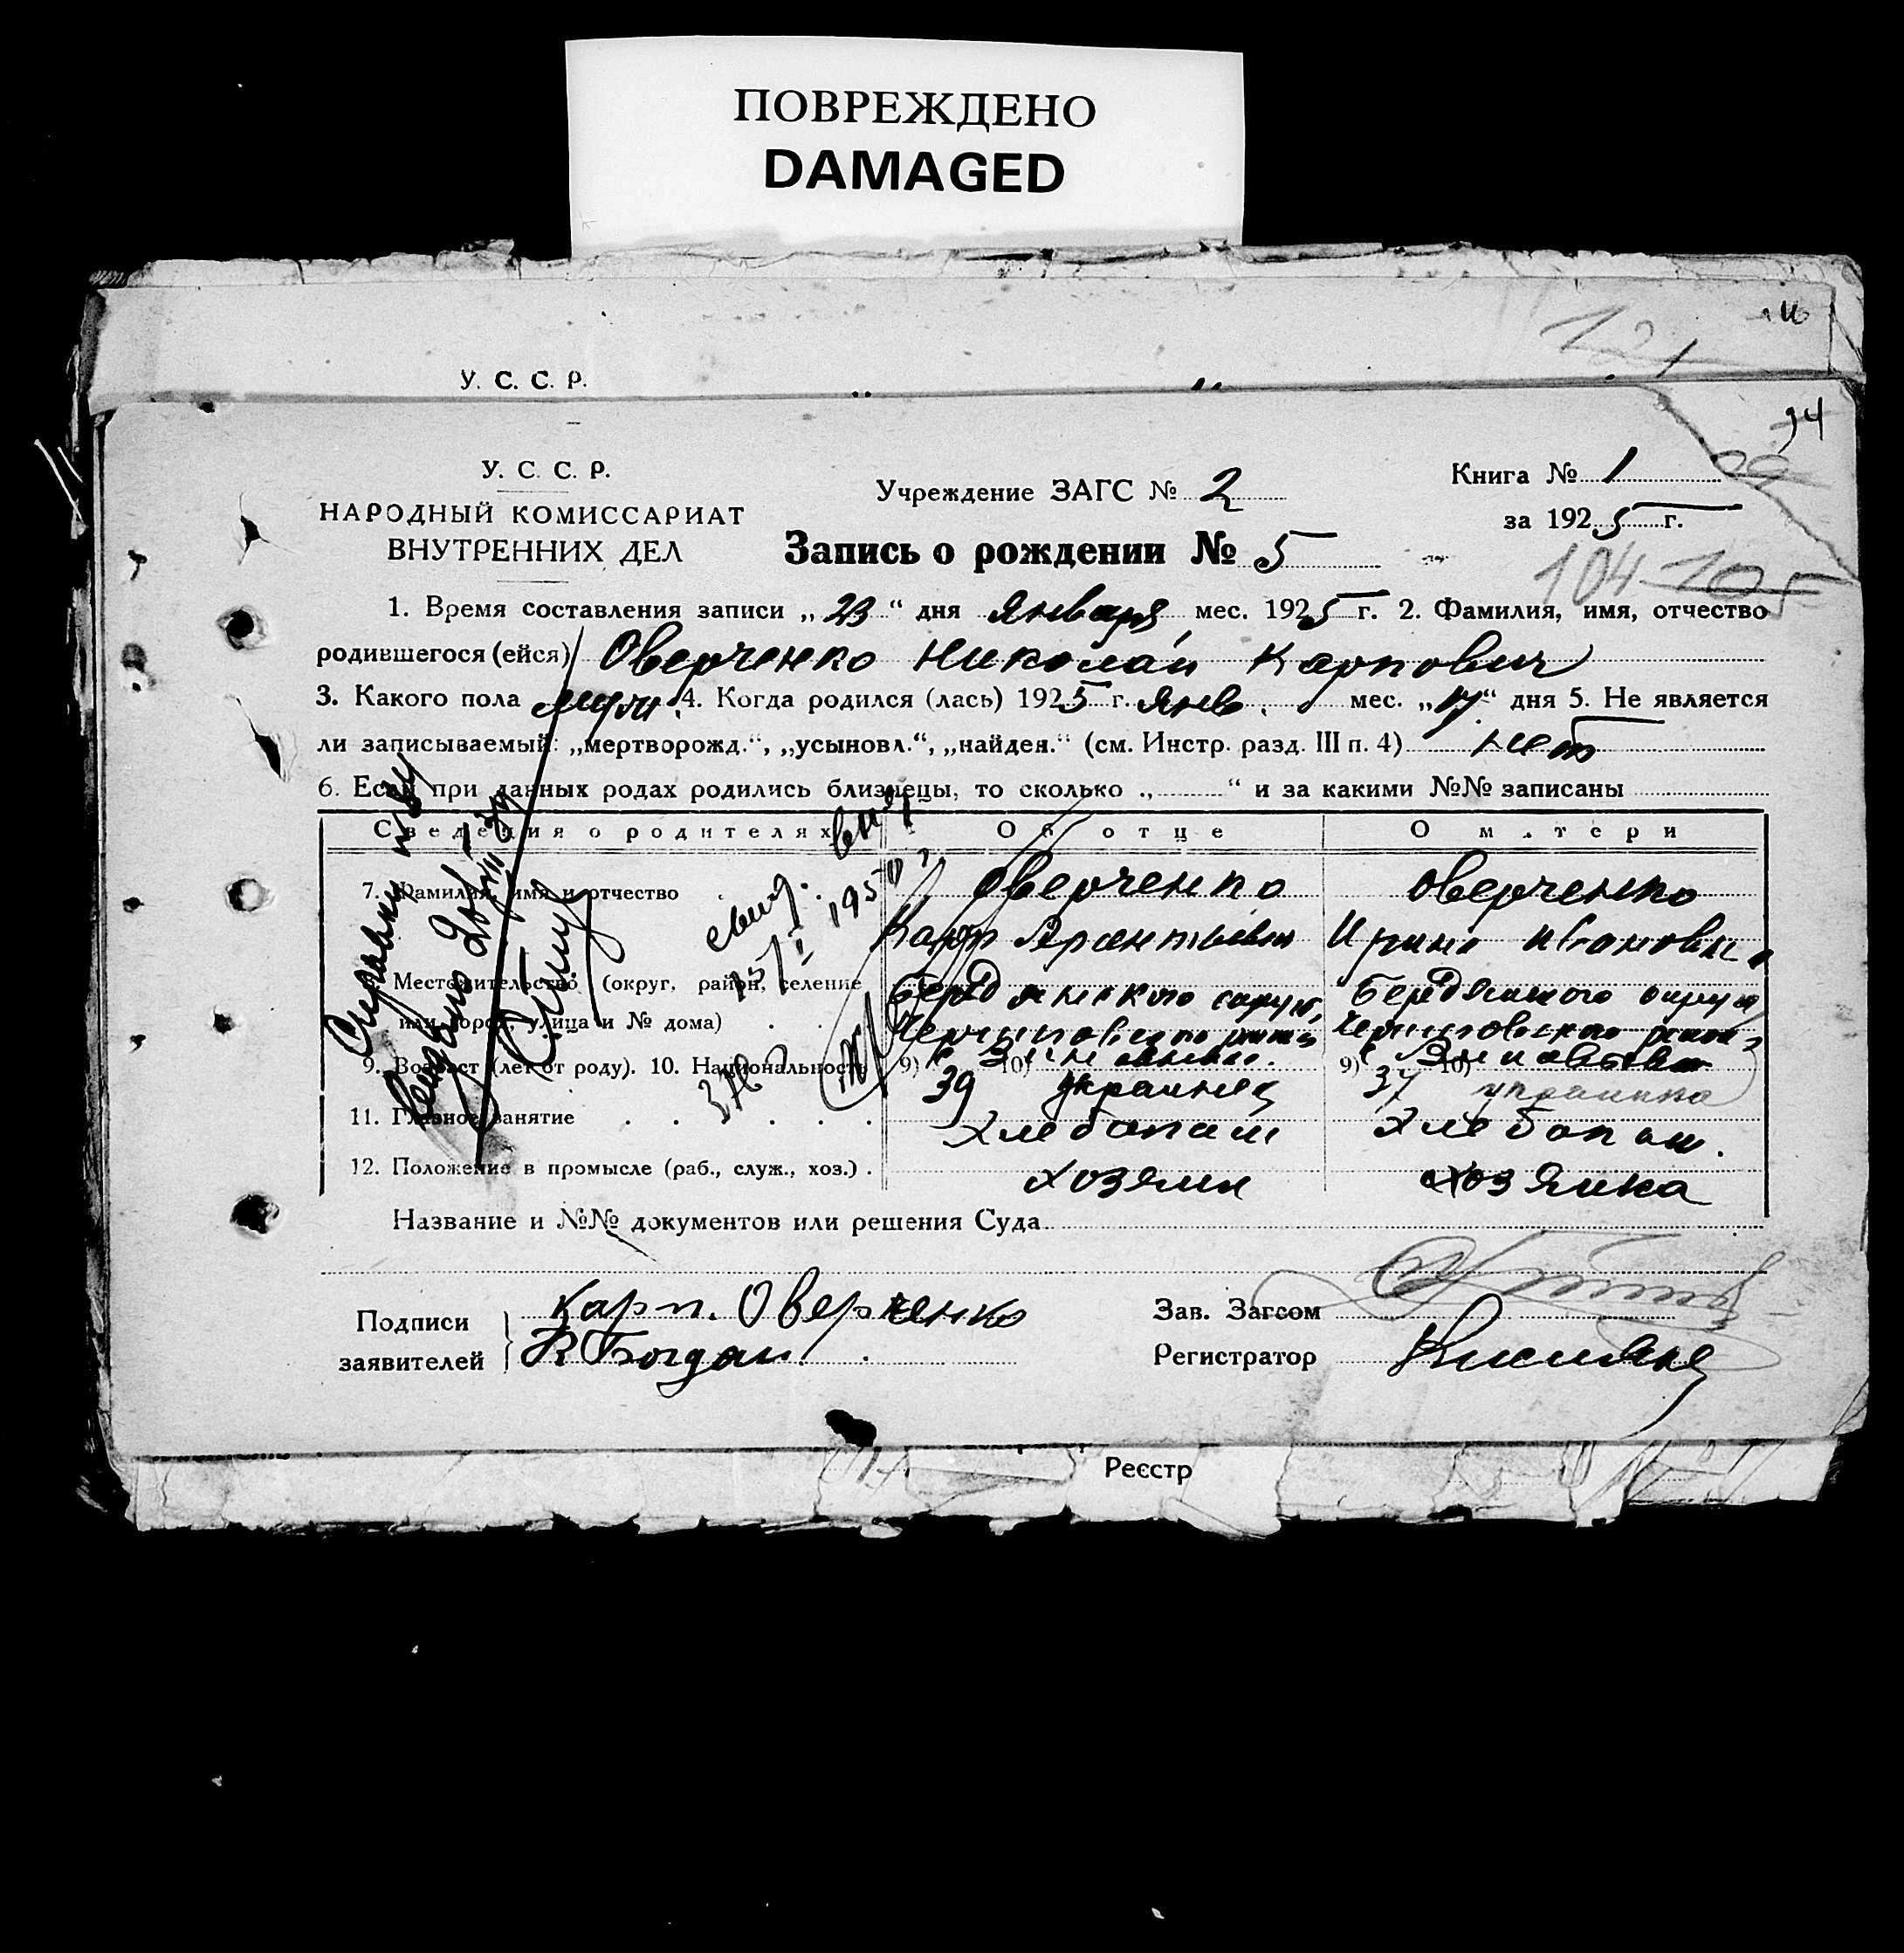 ПОВРЕЖДЕНО
DAMAGED
У. С. С. Р.
94
У. С. С. Р.
НАРОДНЫЙ КОМИССАРИАТ
ВНУТРЕННИХ ДЕЛ
Учреждение ЗАГС № 2
Книга № 1
за 1925 г.
Запись о рождении № 5
104 105
1. Время составления записи „23“ дня Января мес. 1925 г. 2. Фамилия, имя, отчество
родившегося (ейся) Оверченко Николай Карпович
3. Какого пола муж. 4. Когда родился (лась) 1925 г. Янв. мес. „17“ дня 5. Не является
ли записываемый: „мертворожд.“, „усыновл.“, „найден.“ (см. Инстр. разд. III п. 4) нет
6. Если при данных родах родились близнецы, то сколько „ “ и за какими №№ записаны
Сведения о родителях Об отце О матери
7. Фамилия, имя и отчество Оверченко Оверченко
Карп Ирина Ивановна
8. Местожительство (округ, район, селение Бердянского округа, Бердянского округа
или город, улица и № дома) Черниговского района Черниговского района
9. Возраст (лет от роду). 10. Национальность 9) 39 10) украинец 9) 37 10) украинка
11. Главное занятие Хлебопаш Хлебопаш.
12. Положение в промысле (раб., служ., хоз.) хозяин хозяйка
Название и №№ документов или решения Суда
Подписи
заявителей
Карп. Оверченко
Богдан
Зав. Загсом
Регистратор
Справку
выдано
свид.
1950
Реєстр